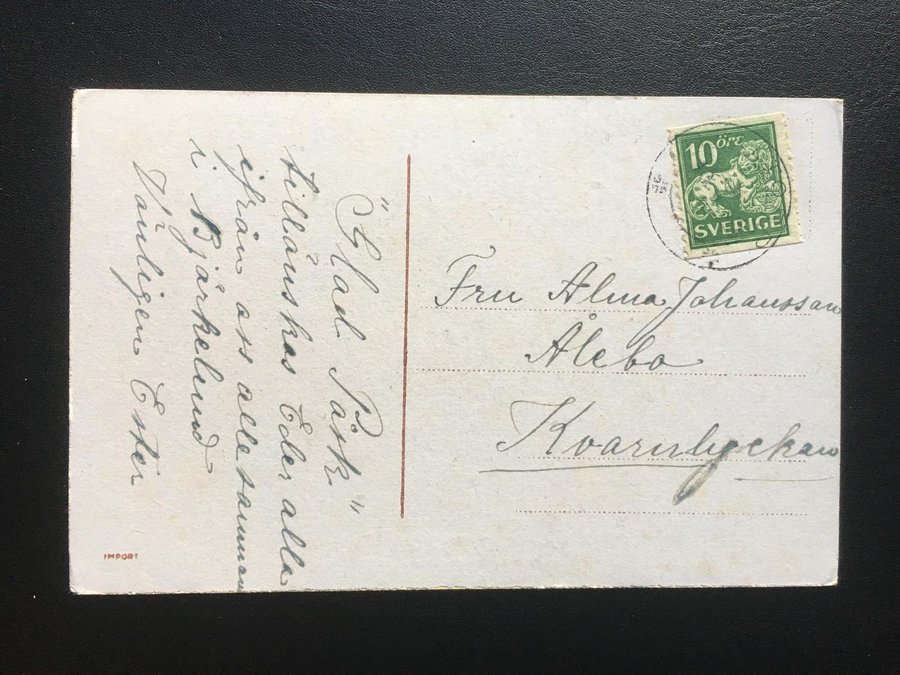 "Glad Påsk"
tillönskas Eder alla
ifrån oss allesamman
i Bjärkelund
Vänligen Ester
IMPORT
10 öre
SVERIGE
Fru Alma Johansson
Ålebo
Kvarnlyckan